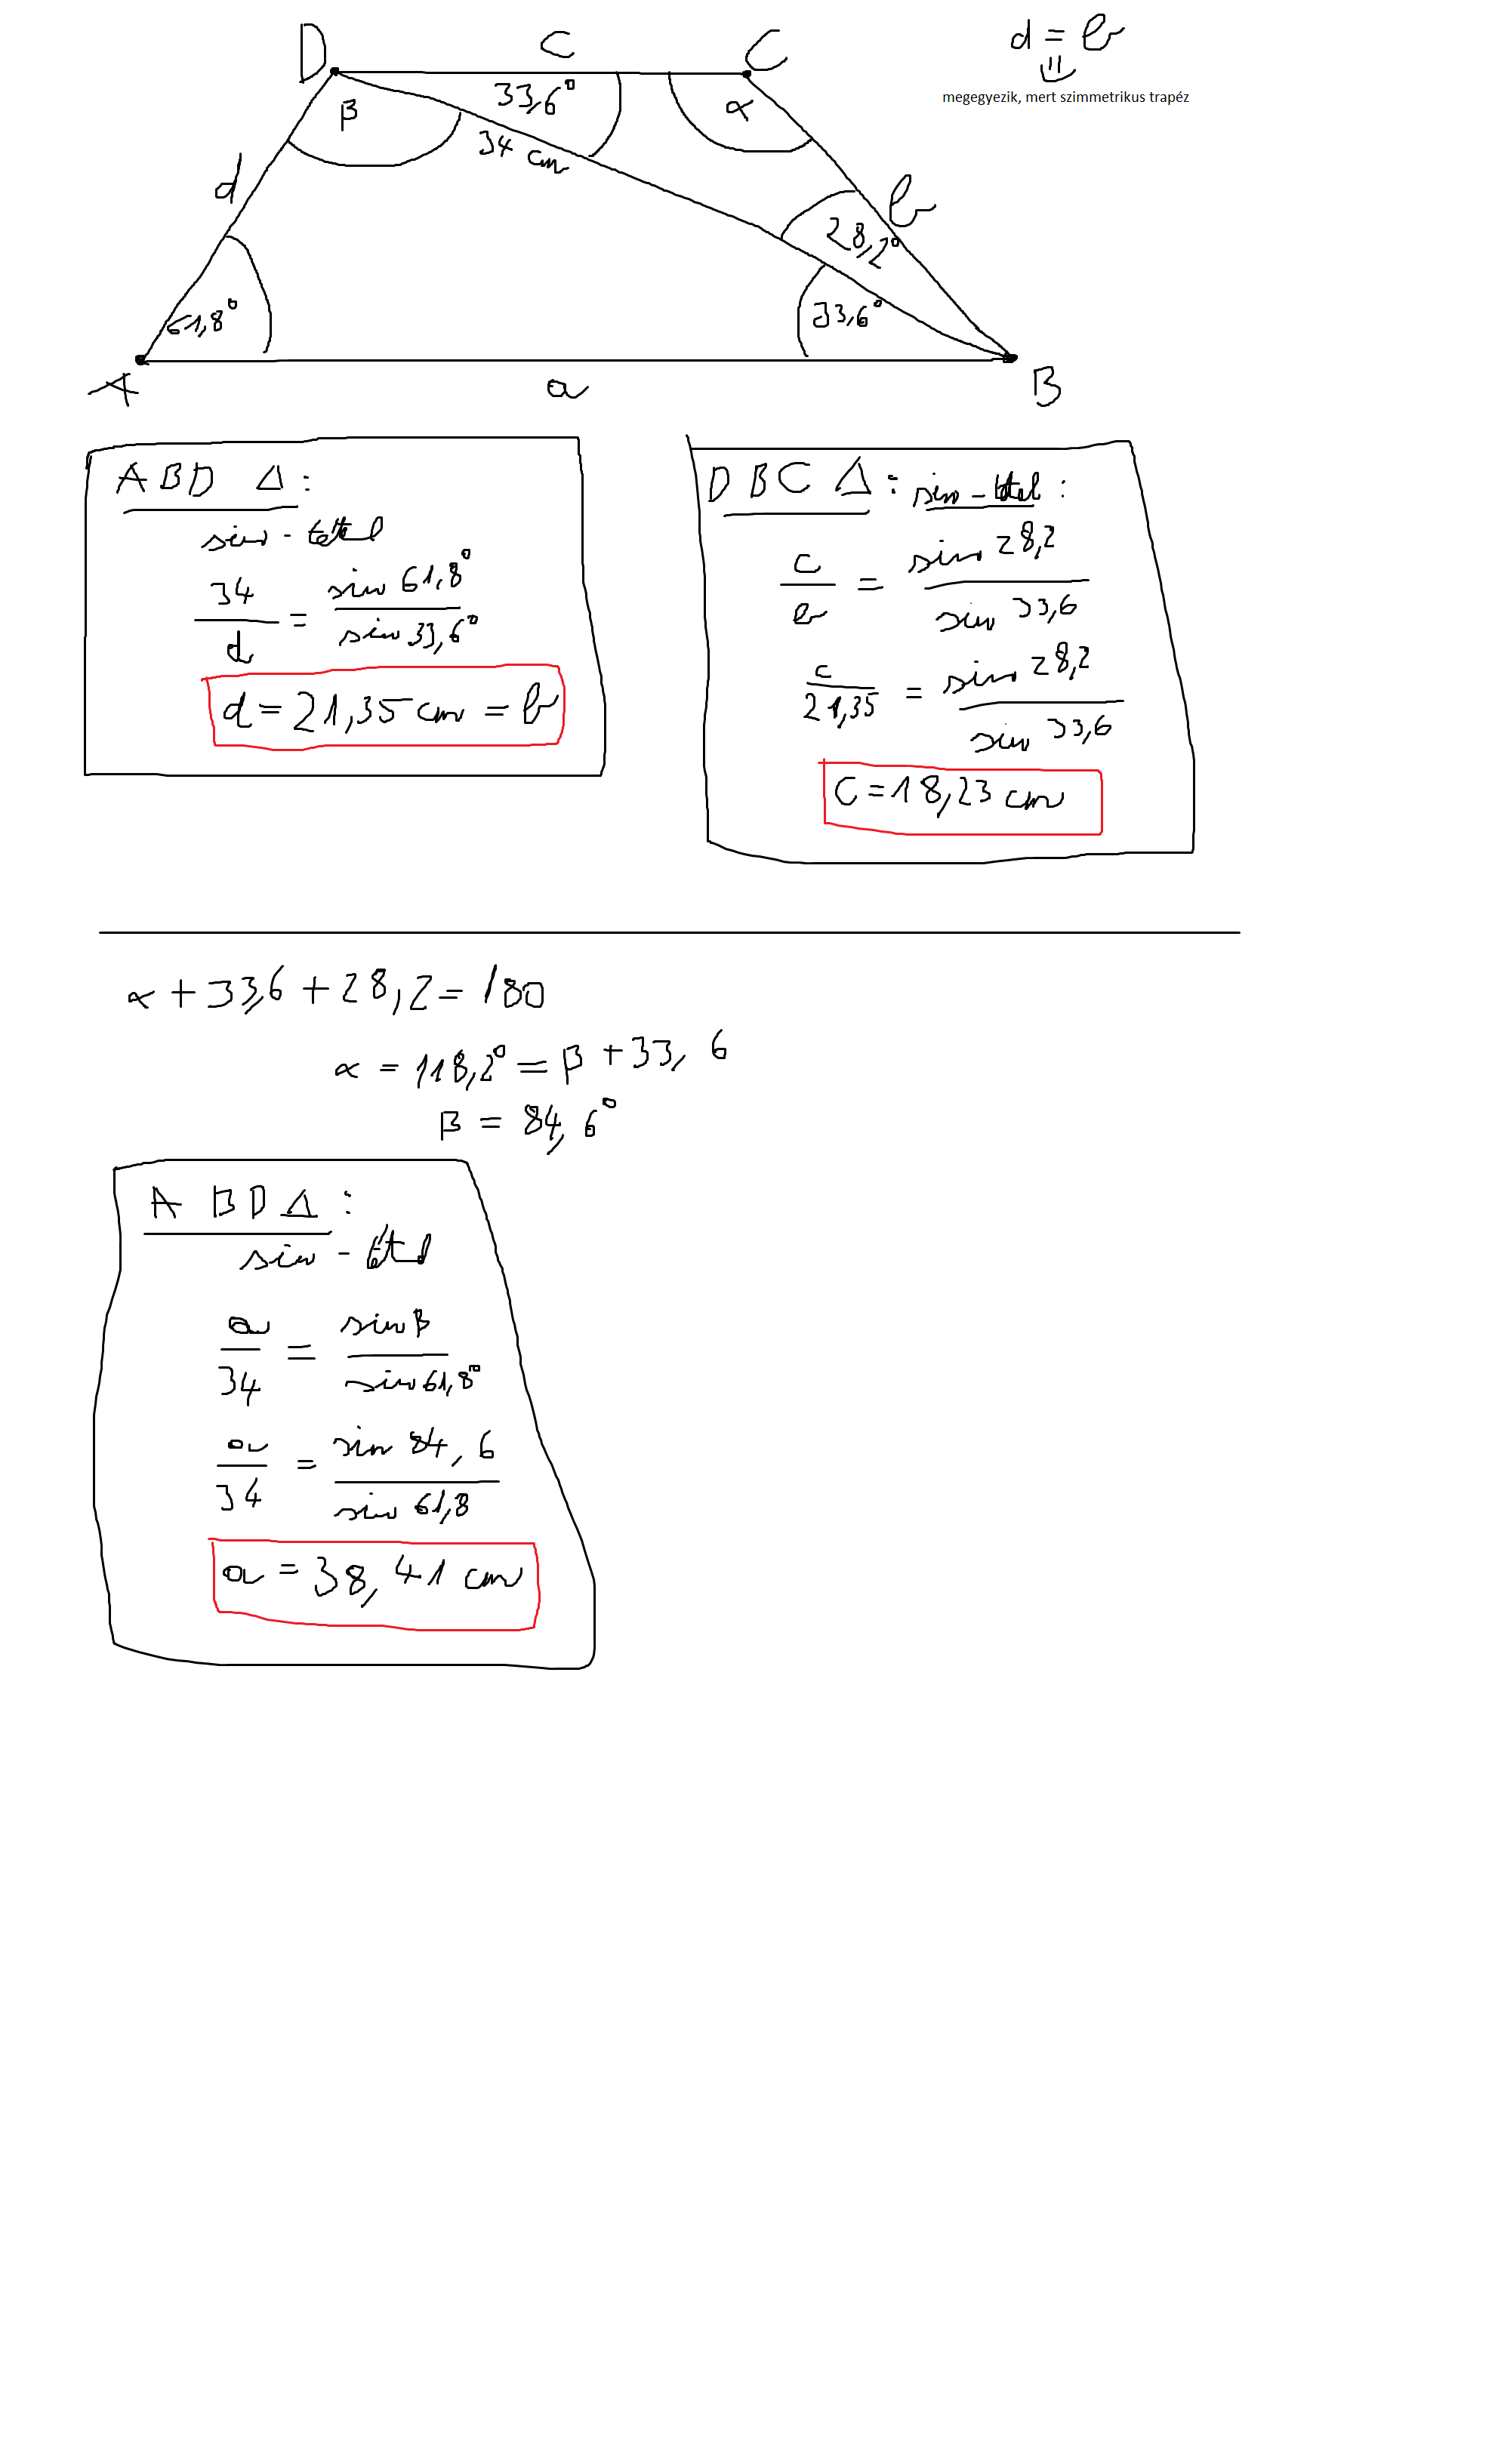 D c C d = b
β 33,6° α
megegyezik, mert szimmetrikus trapéz
34 cm
d b
28,2°
61,8° 33,6°
A a B
ABD Δ:
sin-tétel
34/d = sin 61,8°/sin 33,6°
d = 21,35 cm = b
DBC Δ: sin-tétel:
c/b = sin 28,2/sin 33,6
c/21,35 = sin 28,2/sin 33,6
C = 18,23 cm
α + 33,6 + 28,2 = 180
α = 118,2° = β + 33,6
β = 84,6°
ABD Δ:
sin-tétel
a/34 = sin β/sin 61,8°
a/34 = sin 84,6/sin 61,8
a = 38,41 cm